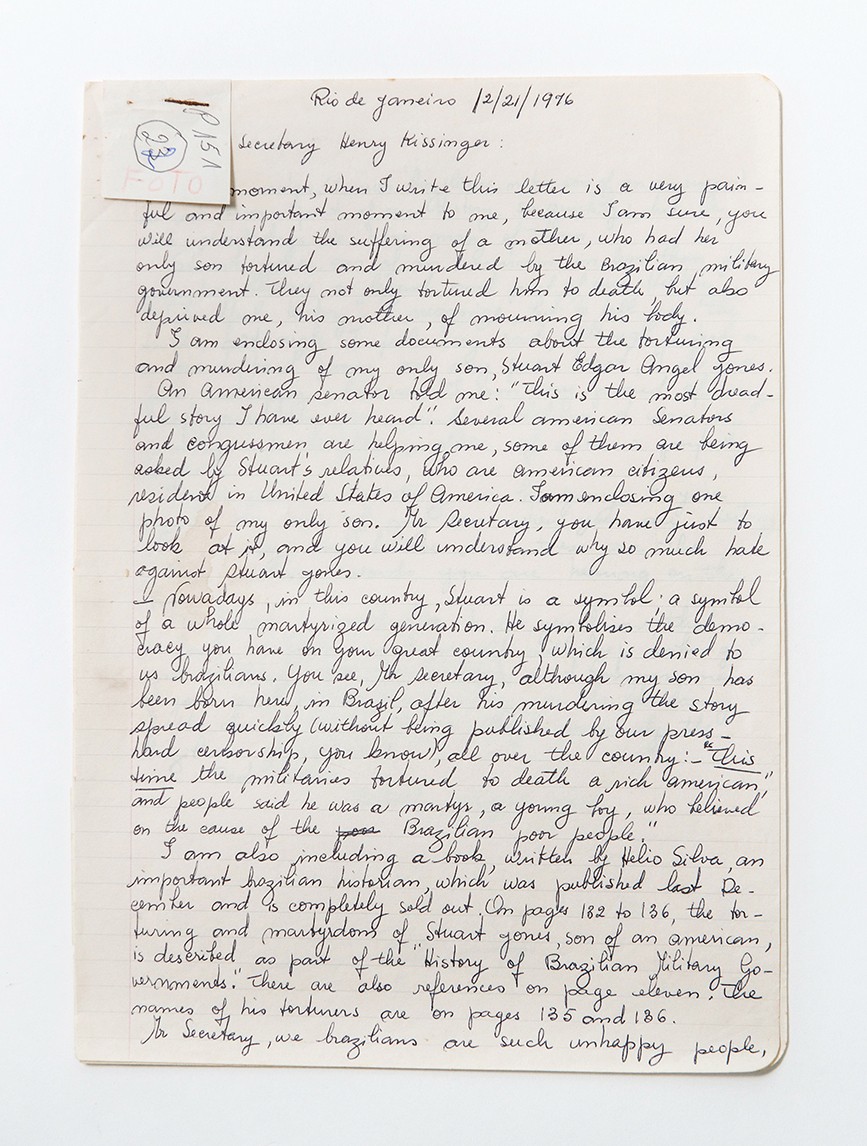 Rio de Janeiro 12/21/1976
P 151
23
FOTO
Secretary Henry Kissinger:
moment, when I write this letter is a very pain-
ful and important moment to me, because I am sure, you
will understand the suffering of a mother, who had her
only son tortured and murdered by the Brazilian military
government. They not only tortured him to death, but also
deprived me, his mother, of mourning his body.
I am enclosing some documents about the torturing
and murdering of my only son, Stuart Edgar Angel Jones.
An American senator told me: "This is the most dread-
ful story I have ever heard". Several american Senators
and congressmen are helping me, some of them are being
asked by Stuart's relatives, who are american citizens,
resident in United States of America. I am enclosing one
photo of my only son. Mr Secretary, you have just to
look at it, and you will understand why so much hate
against Stuart Jones.
— Nowadays, in this country, Stuart is a symbol; a symbol
of a whole martyrized generation. He symbolises the demo-
cracy you have on your great country, which is denied to
us brazilians. You see, Mr Secretary, although my son has
been born here, in Brazil, after his murdering the story
spread quickly (without being published by our press-
hard censorship, you know), all over the country:- "This
time the militaries tortured to death a rich american,"
and people said he was a martyr, a young boy, who believed
on the cause of the poor Brazilian poor people."
I am also including a book, written by Helio Silva, an
important brazilian historian, which was published last De-
cember and is completely sold out. On pages 132 to 136, the tor-
turing and martyrdom of "Stuart Jones, son of an american,
is described as part of the "History of Brazilian Military Go-
vernments." There are also references on page eleven. The
names of his torturers are on pages 135 and 136.
Mr Secretary, we brazilians are such unhappy people,